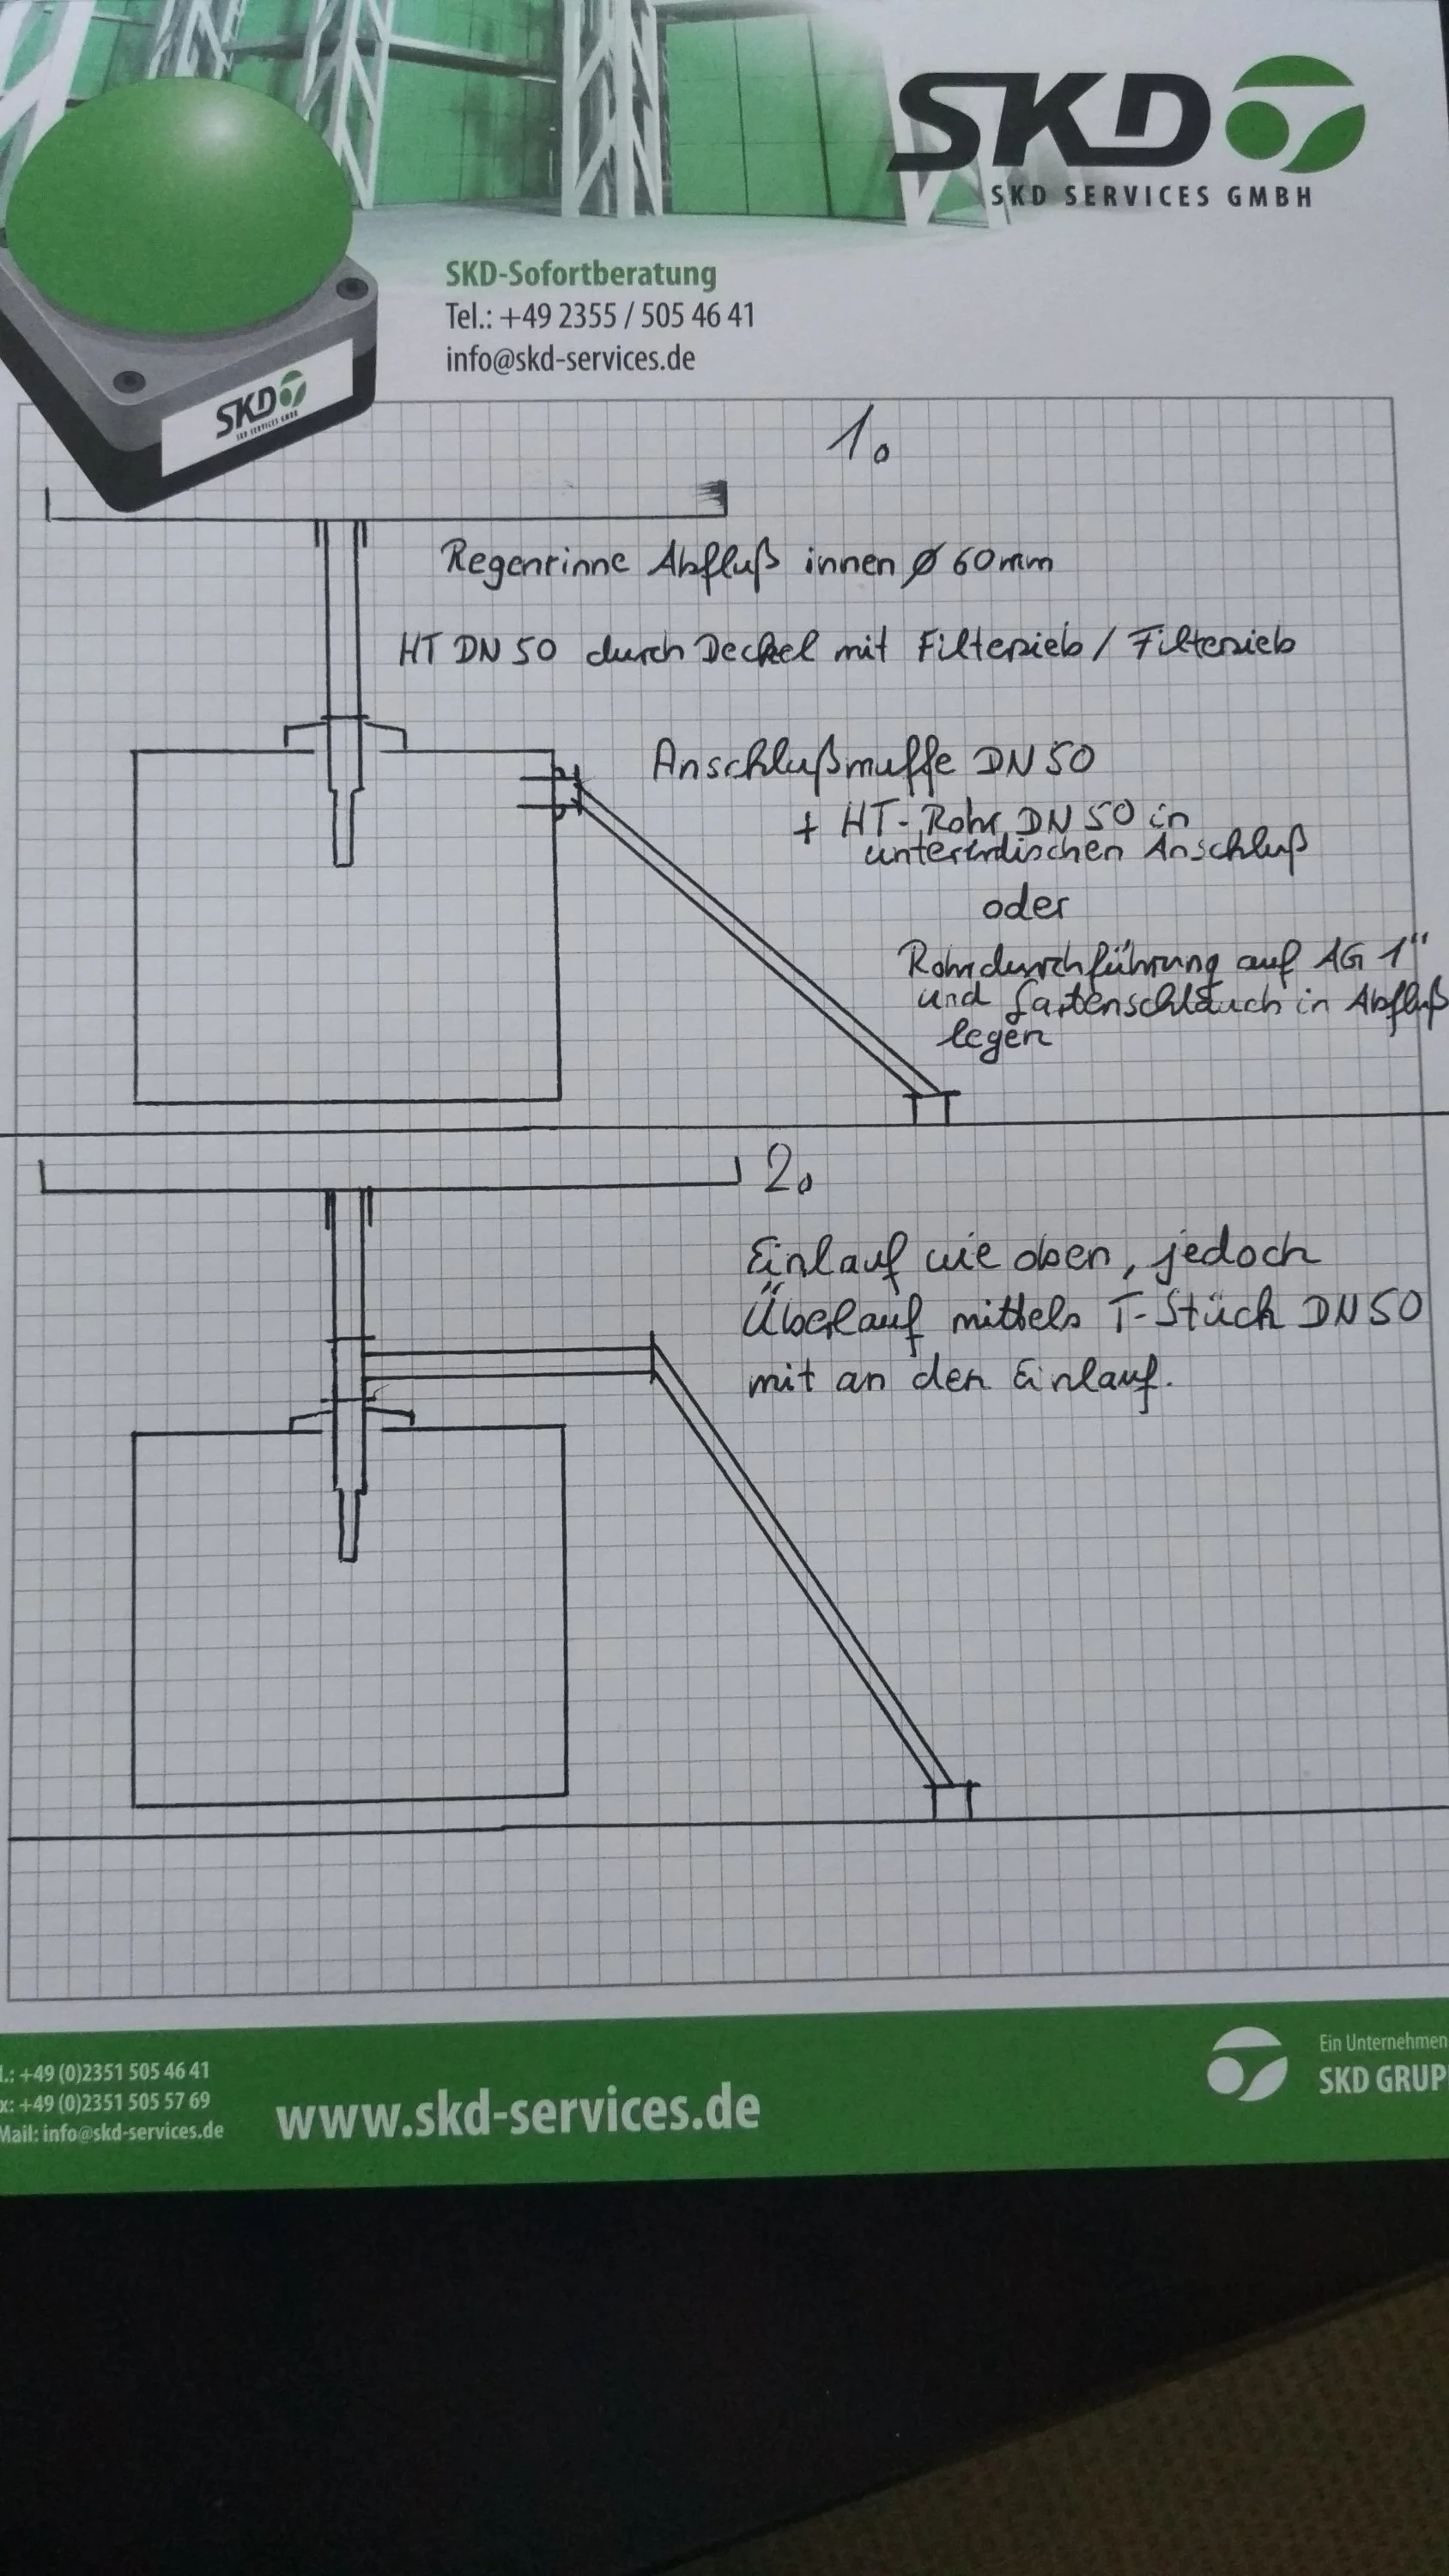 SKD
SKD SERVICES GMBH
SKD-Sofortberatung
Tel.: +49 2355 / 505 46 41
info@skd-services.de
SKD
SKD SERVICES GMBH
1.
Regenrinne Abfluß innen Ø 60mm
HT DN 50 durch Deckel mit Filtersieb / Filtersieb
Anschlußmuffe DN 50
+ HT-Rohr DN 50 in
unterirdischen Anschluß
oder
Rohrdurchführung auf AG 1"
und Gartenschlauch in Abfluß
legen
2.
Einlauf wie oben, jedoch
Überlauf mittels T-Stück DN 50
mit an den Einlauf.
l.: +49 (0)2351 505 46 41
x: +49 (0)2351 505 57 69
Mail: info@skd-services.de
www.skd-services.de
Ein Unternehmen
SKD GRUP